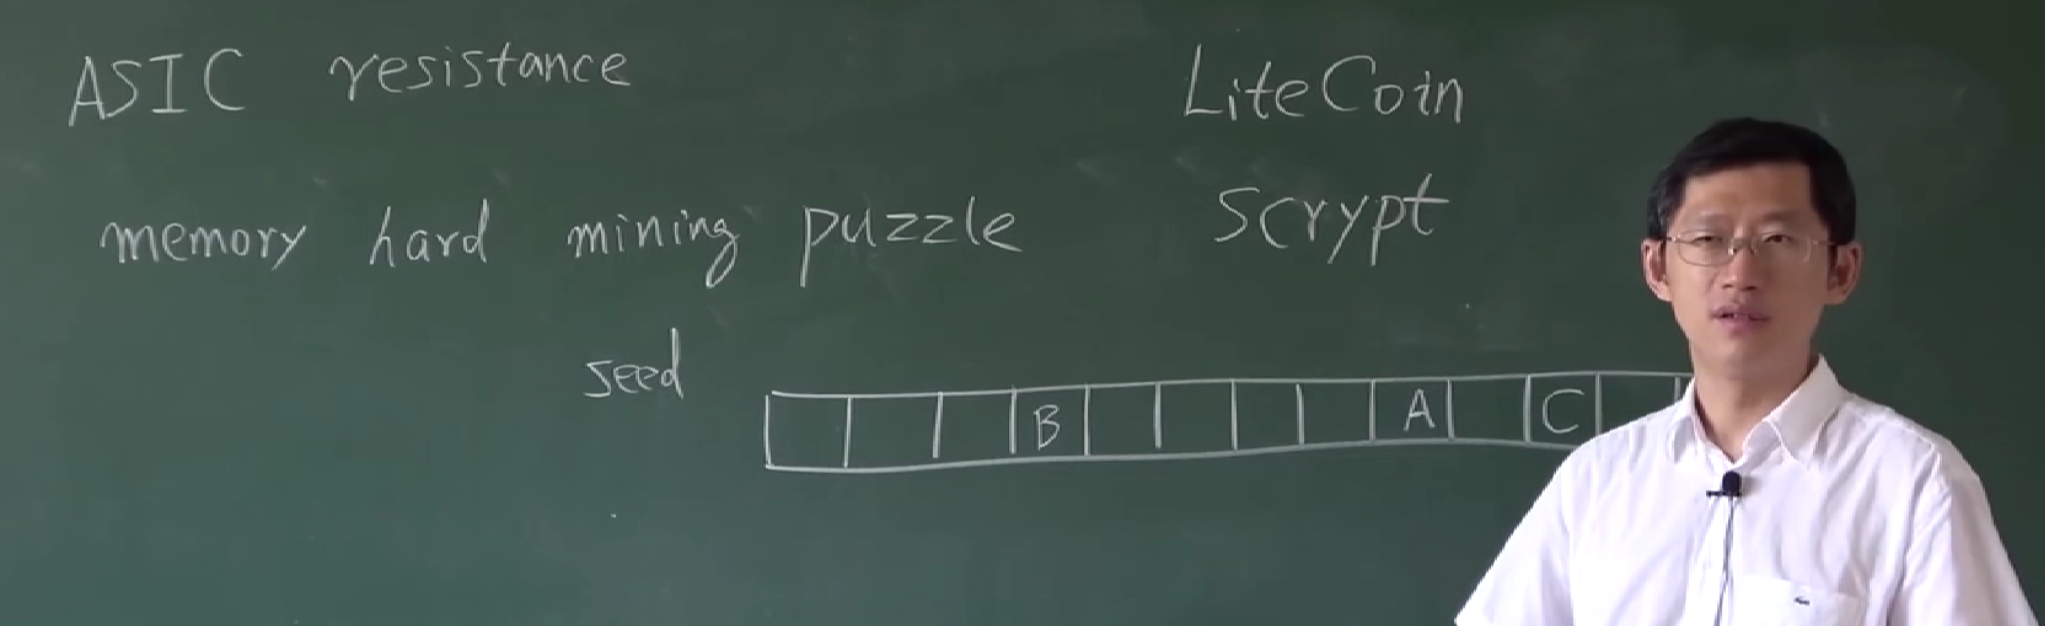 ASIC resistance
LiteCoin
memory hard mining puzzle
scrypt
seed
B A C